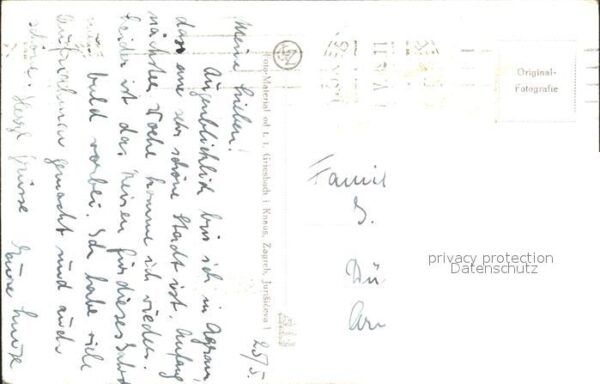 25/5.
Meine Lieben!
Augenblicklich bin ich in Agram,
das eine sehr schöne Stadt ist. Anfang
nächster Woche komme ich wieder.
Leider ist das Reisen für dieses
bald vorbei. Ich habe viele
Aufnahmen gemacht und auch
schöne. Herzl Grüsse Eure
Foto-Material od t. t. Griesbach i Knaus, Zagreb, Jurišićeva 1
Original-
Fotografie
Famil
G.
Dü
privacy protection
Datenschutz